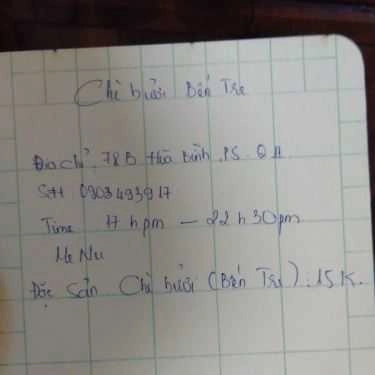 Chè bưởi Bến Tre
Địa chỉ: 78B Hoà Bình, P5. Q11
Sđt 0903493917
Time 17 h pm — 22 h 30 pm
Me Nu
Đặc Sản Chè bưởi (Bến Tre) : 15K.